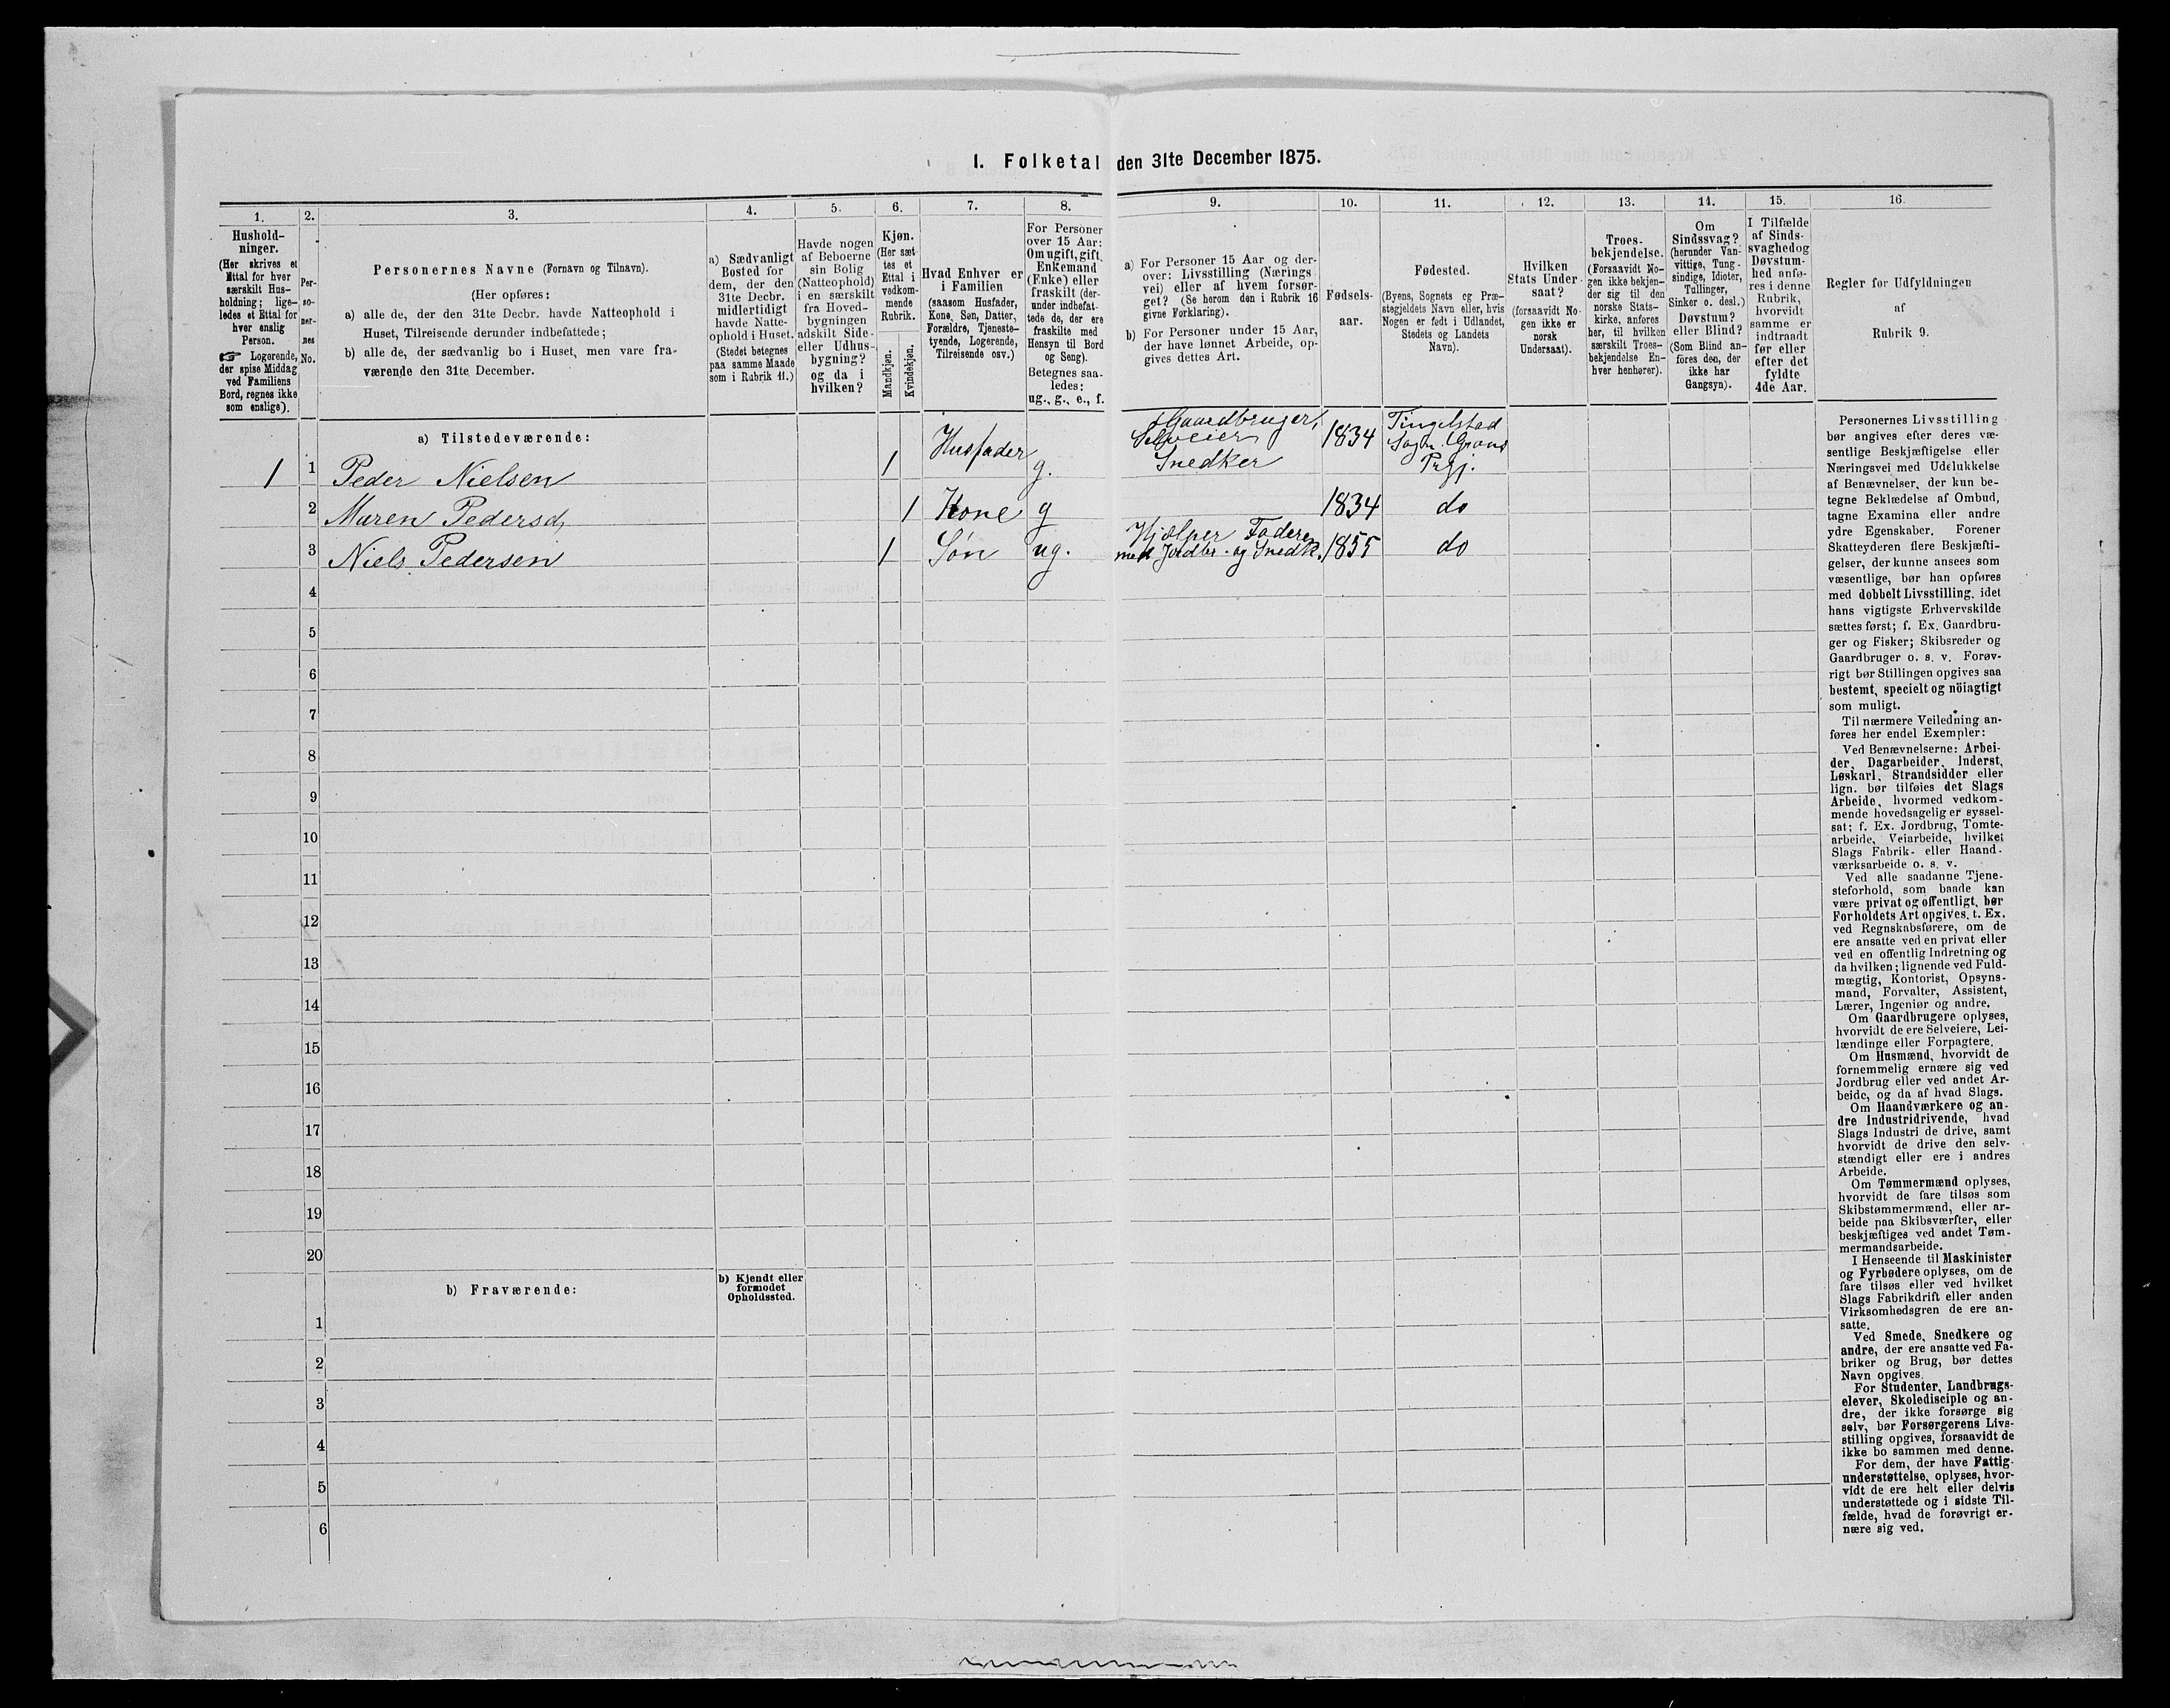 1. Folketal den 31te December 1875.
1.
Hushold-
ninger.
(Her skrives et
Ettal for hver
særskilt Hus-
holdning; lige-
ledes et Ettal for
hver enslig
Person.
☞ Logerende,
der spise Middag
ved Familiens
Bord, regnes ikke
som enslige).
2.
Per-
so-
ner-
nes
No.
3.
Personernes Navne (Fornavn og Tilnavn).
(Her opføres:
a) alle de, der den 31te Decbr. havde Natteophold i
Huset, Tilreisende derunder indbefattede;
b) alle de, der sædvanlig bo i Huset, men vare fra-
værende den 31te December.
4.
a) Sædvanligt
Bosted for
dem, der den
31te Decbr.
midlertidigt
havde Natte-
ophold i Huset.
(Stedet betegnes
paa samme Maade
som i Rubrik 11.)
5.
Havde nogen
af Beboerne
sin Bolig
(Natteophold)
i en særskilt
fra Hoved-
bygningen
adskilt Side-
eller Udhus-
bygning?
og da i
hvilken?
6.
Kjøn.
(Her sæt-
tes et
Ettal i
vedkom-
mende
Rubrik.
Mandkjøn.
Kvindekjøn.
7.
Hvad Enhver er
i Familien
(saasom Husfader,
Kone, Søn, Datter,
Forældre, Tjeneste-
tyende, Logerende,
Tilreisende osv.)
8.
For Personer
over 15 Aar:
Om ugift, gift,
Enkemand
(Enke) eller
fraskilt (der-
under indbefat-
tede de, der ere
fraskilte med
Hensyn til Bord
og Seng).
Betegnes saa-
ledes:
ug., g., e., f.
9.
a) For Personer 15 Aar og der-
over: Livsstilling (Nærings
vei) eller af hvem forsør-
get? (Se herom den i Rubrik 16
givne Forklaring).
b) For Personer under 15 Aar,
der have lønnet Arbeide, op-
gives dettes Art.
10.
Fødsels-
aar.
11.
Fødested.
(Byens, Sognets og Præ-
stegjeldets Navn eller, hvis
Nogen er født i Udlandet,
Stedets og Landets
Navn).
12.
Hvilken
Stats Under-
saat?
(forsaavidt No-
gen ikke er
norsk
Undersaat).
13.
Troes-
bekjendelse.
(Forsaavidt No-
gen ikke bekjen-
der sig til den
norske Stats-
kirke, anføres
her, til hvilken
særskilt Troes-
bekjendelse En-
hver henhører).
14.
Om
Sindssvag?
(herunder Van-
vittige, Tung-
sindige, Idioter,
Tullinger,
Sinker o. desl.)
Døvstum?
eller Blind?
(Som Blind an-
føres den, der
ikke har
Gangsyn).
15.
I Tilfælde
af Sinds-
svaghed og
Døvstum-
hed anfø-
res i denne
Rubrik,
hvorvidt
samme er
indtraadt
før eller
efter det
fyldte
4de Aar.
16.
Regler for Udfyldningen
af
Rubrik 9.
a) Tilstedeværende:
1 1 Peder Nielsen 1 Husfader g. Gaardbruger, Selveier Snedker 1834 Tingelstad Sogn. Grans Prgj.
2 Maren Pedersd. 1 Kone g 1834 do
3 Niels Pedersen 1 Søn ug. Hjælper Faderen med Jordbr. og Snedk. 1855 do
4
5
6
7
8
9
10
11
12
13
14
15
16
17
18
19
20
b) Fraværende:
b) Kjendt eller
formodet
Opholdssted.
1
2
3
4
5
6
Personernes Livsstilling
bør angives efter deres væ-
sentlige Beskjæftigelse eller
Næringsvei med Udelukkelse
af Benævnelser, der kun be-
tegne Beklædelse af Ombud,
tagne Examina eller andre
ydre Egenskaber. Forener
Skatteyderen flere Beskjæfti-
gelser, der kunne ansees som
væsentlige, bør han opføres
med dobbelt Livsstilling, idet
hans vigtigste Erhvervskilde
sættes først; f. Ex. Gaardbru-
ger og Fisker; Skibsreder og
Gaardbruger o. s. v. Forøv-
rigt bør Stillingen opgives saa
bestemt, specielt og nöiagtigt
som muligt.
Til nærmere Veiledning an-
føres her endel Exempler:
Ved Benævnelserne: Arbei-
der, Dagarbeider, Inderst,
Løskarl, Strandsidder eller
lign. bør tilføies det Slags
Arbeide, hvormed vedkom-
mende hovedsagelig er syssel-
sat; f. Ex. Jordbrug, Tomte-
arbeide, Veiarbeide, hvilket
Slags Fabrik- eller Haand-
værksarbeide o. s. v.
Ved alle saadanne Tjene-
steforhold, som baade kan
være privat og offentligt, bør
Forholdets Art opgives, t. Ex.
ved Regnskabsførere, om de
ere ansatte ved en privat eller
ved en offentlig Indretning og
da hvilken; lignende ved Fuld-
mægtig, Kontorist, Opsyns-
mand, Forvalter, Assistent,
Lærer, Ingeniør og andre.
Om Gaardbrugere oplyses,
hvorvidt de ere Selveiere, Lei-
lændinge eller Forpagtere.
Om Husmænd, hvorvidt de
fornemmelig ernære sig ved
Jordbrug eller ved andet Ar-
beide, og da af hvad Slags.
Om Haandværkere og an-
dre Industridrivende, hvad
Slags Industri de drive, samt
hvorvidt de drive den selv-
stændigt eller ere i andres
Arbeide.
Om Tømmermænd oplyses,
hvorvidt de fare tilsøs som
Skibstømmermænd, eller ar-
beide paa Skibsværfter, eller
beskjæftiges ved andet Tøm-
mermandsarbeide.
I Henseende til Maskinister
og Fyrbødere oplyses, om de
fare tilsøs eller ved hvilket
Slags Fabrikdrift eller anden
Virksomhedsgren de ere an-
satte.
Ved Smede, Snedkere og
andre, der ere ansatte ved Fa-
briker og Brug, bør dettes
Navn opgives.
For Studenter, Landbrugs-
elever, Skoledisciple og an-
dre, der ikke forsørge sig
selv, bør Forsørgerens Livs-
stilling opgives, forsaavidt de
ikke bo sammen med denne.
For dem, der have Fattig-
understøttelse, oplyses, hvor-
vidt de ere helt eller delvis
understøttede og i sidste Til-
fælde, hvad de forøvrigt er-
nære sig ved.